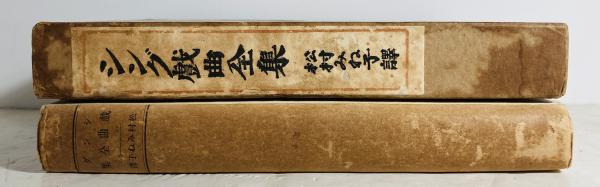 シング戯曲全集
松村みね子譯
シング
戯曲全集
松村みね子譯